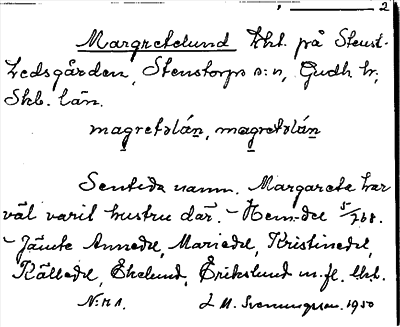 2
Margretelund tht. på Stenst-
Ledsgården, Stenstorps s:n, Gudh. hr,
Skb. län.
magretəlán, magretəlán
Sentida namn. Margareta har
väl varit hustru där. – Hem.del 5/768.
– Jämte Annedel, Mariedel, Kristinedel,
Källedel, Ekelund, Erikslund m.fl. tht.
N.M A. L M. Svenungsson. 1950